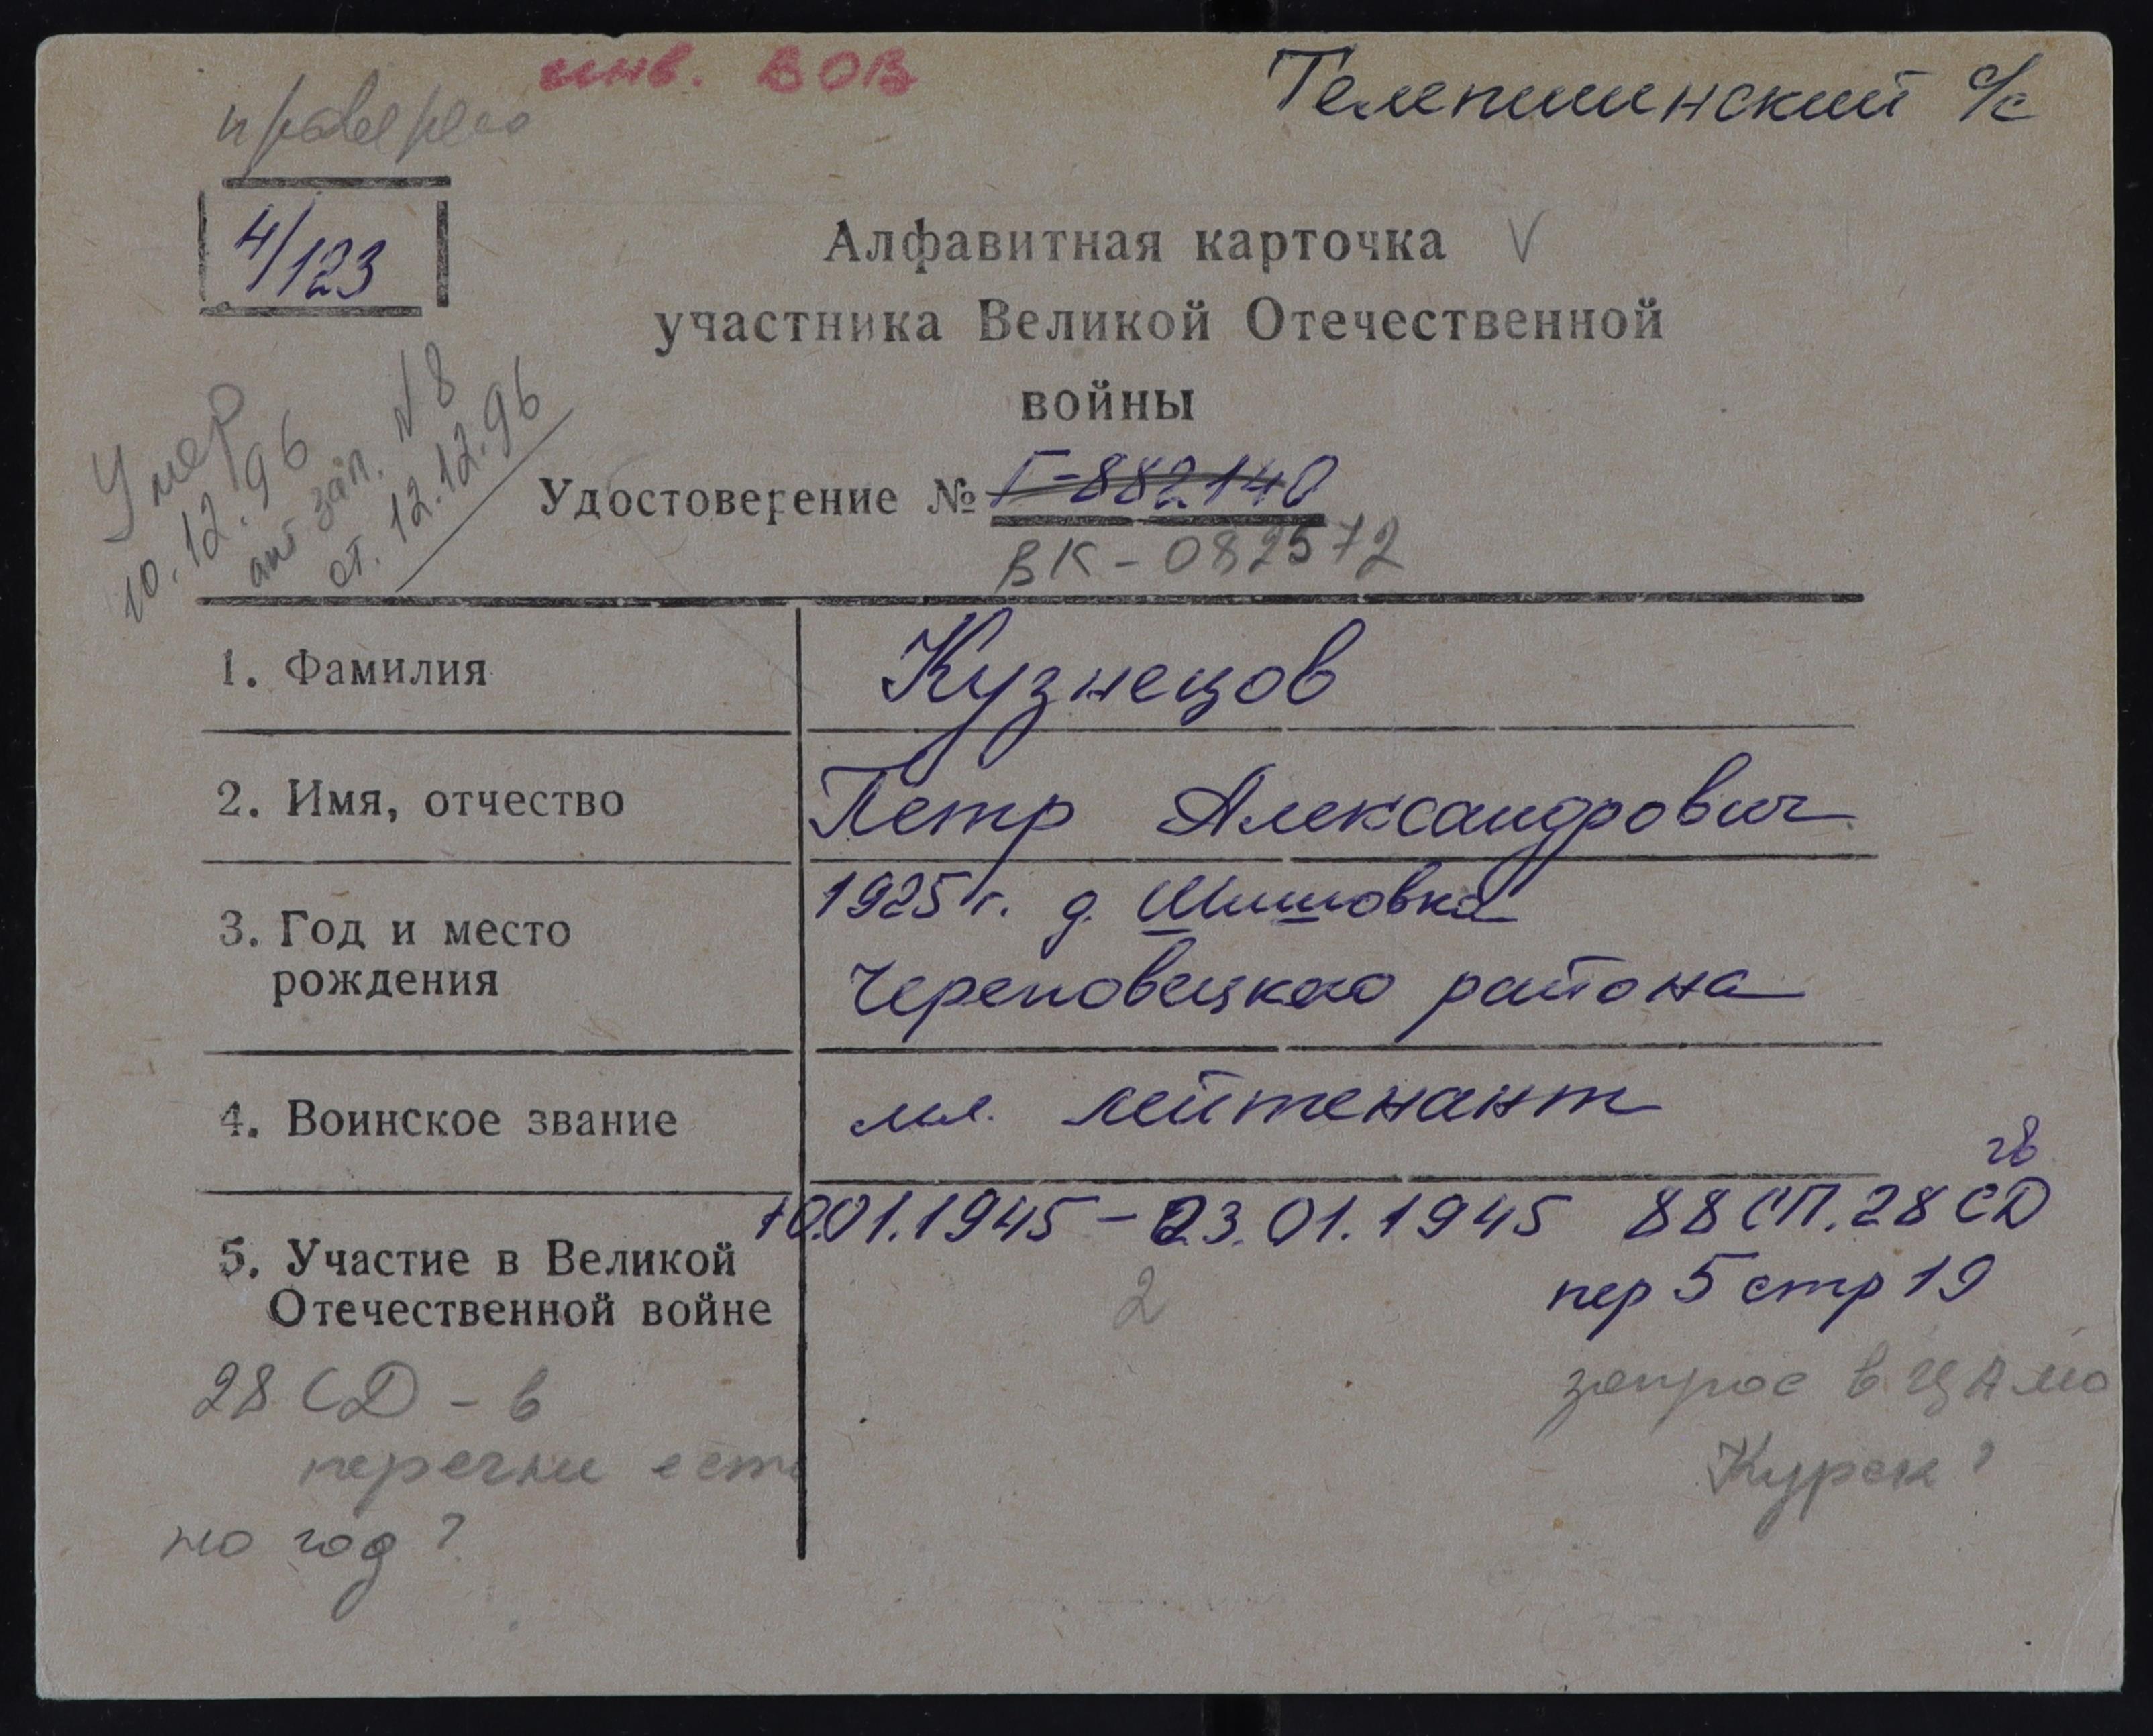 инв. ВОВ
Телепшинский с/с
проверено
4/123
Алфавитная карточка V
участника Великой Отечественной
войны
Умер
10.12.96
акт зап. N 8
от. 12.12.96
Удостоверение № Г-882140
ВК-082572
1. Фамилия
Кузнецов
2. Имя, отчество
Петр Александрович
3. Год и место
рождения
1925 г. д. Шишовка
Череповецкого района
4. Воинское звание
мл. лейтенант
5. Участие в Великой
Отечественной войне
10.01.1945 - 23.01.1945 88 СП. 28 гв СД
пер 5 стр 19
2
28 СД - в
перечни есть
но год?
запрос в ЦАМО
Курск?